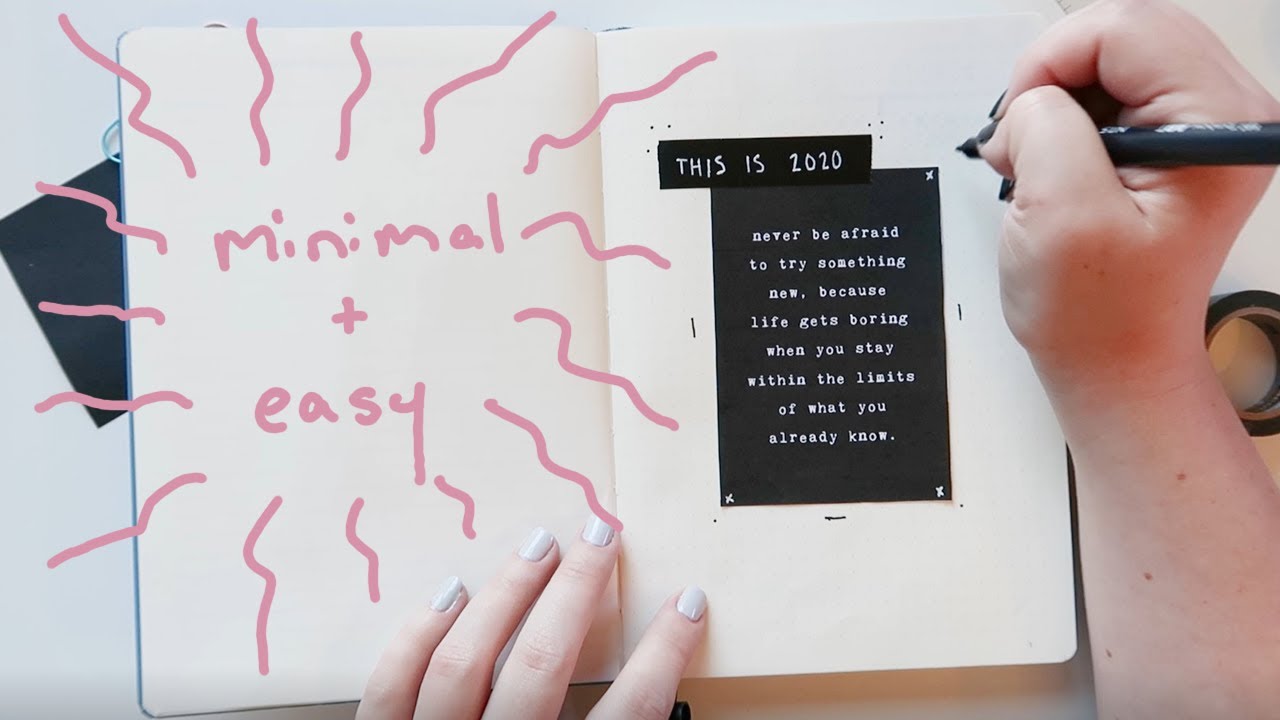 minimal
+
easy
THIS IS 2020
never be afraid
to try something
new, because
life gets boring
when you stay
within the limits
of what you
already know.